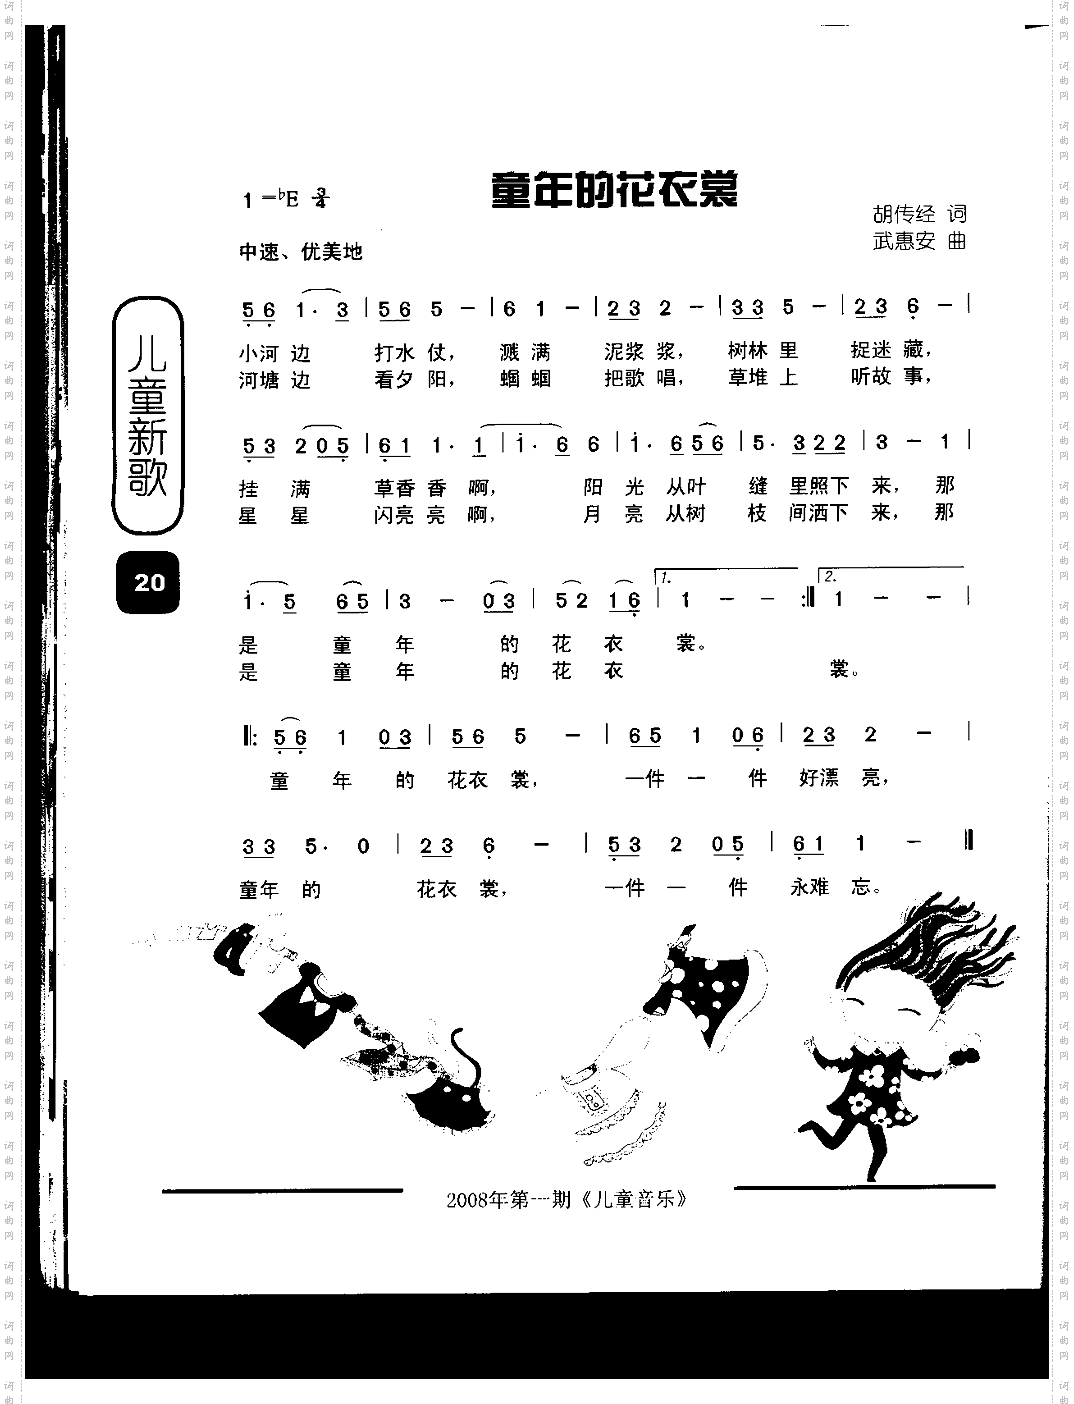 童年的花衣裳
1=♭E 3/4
胡传经 词
武惠安 曲
中速、优美地
儿童新歌
20
5 6 1· 3 | 5 6 5 - | 6 1 - | 2 3 2 - | 3 3 5 - | 2 3 6 - |
小河 边 打水 仗, 溅 满 泥浆 浆, 树林 里 捉迷 藏,
河塘 边 看夕 阳, 蝈 蝈 把歌 唱, 草堆 上 听故 事,
5 3 2 0 5 | 6 1 1· 1 | i· 6 6 | i· 6 5 6 | 5· 3 2 2 | 3 - 1 |
挂 满 草香 香 啊, 阳 光 从叶 缝 里照下 来, 那
星 星 闪亮 亮 啊, 月 亮 从树 枝 间洒下 来, 那
i· 5 6 5 | 3 - 0 3 | 5 2 1 6 | 1. 1 - - :‖ 2. 1 - - |
是 童 年 的 花 衣 裳。
是 童 年 的 花 衣 裳。
‖: 5 6 1 0 3 | 5 6 5 - | 6 5 1 0 6 | 2 3 2 - |
童 年 的 花衣 裳, 一件 一 件 好漂 亮,
3 3 5· 0 | 2 3 6 - | 5 3 2 0 5 | 6 1 1 - ‖
童年 的 花衣 裳, 一件 一 件 永难 忘。
2008年第一期《儿童音乐》